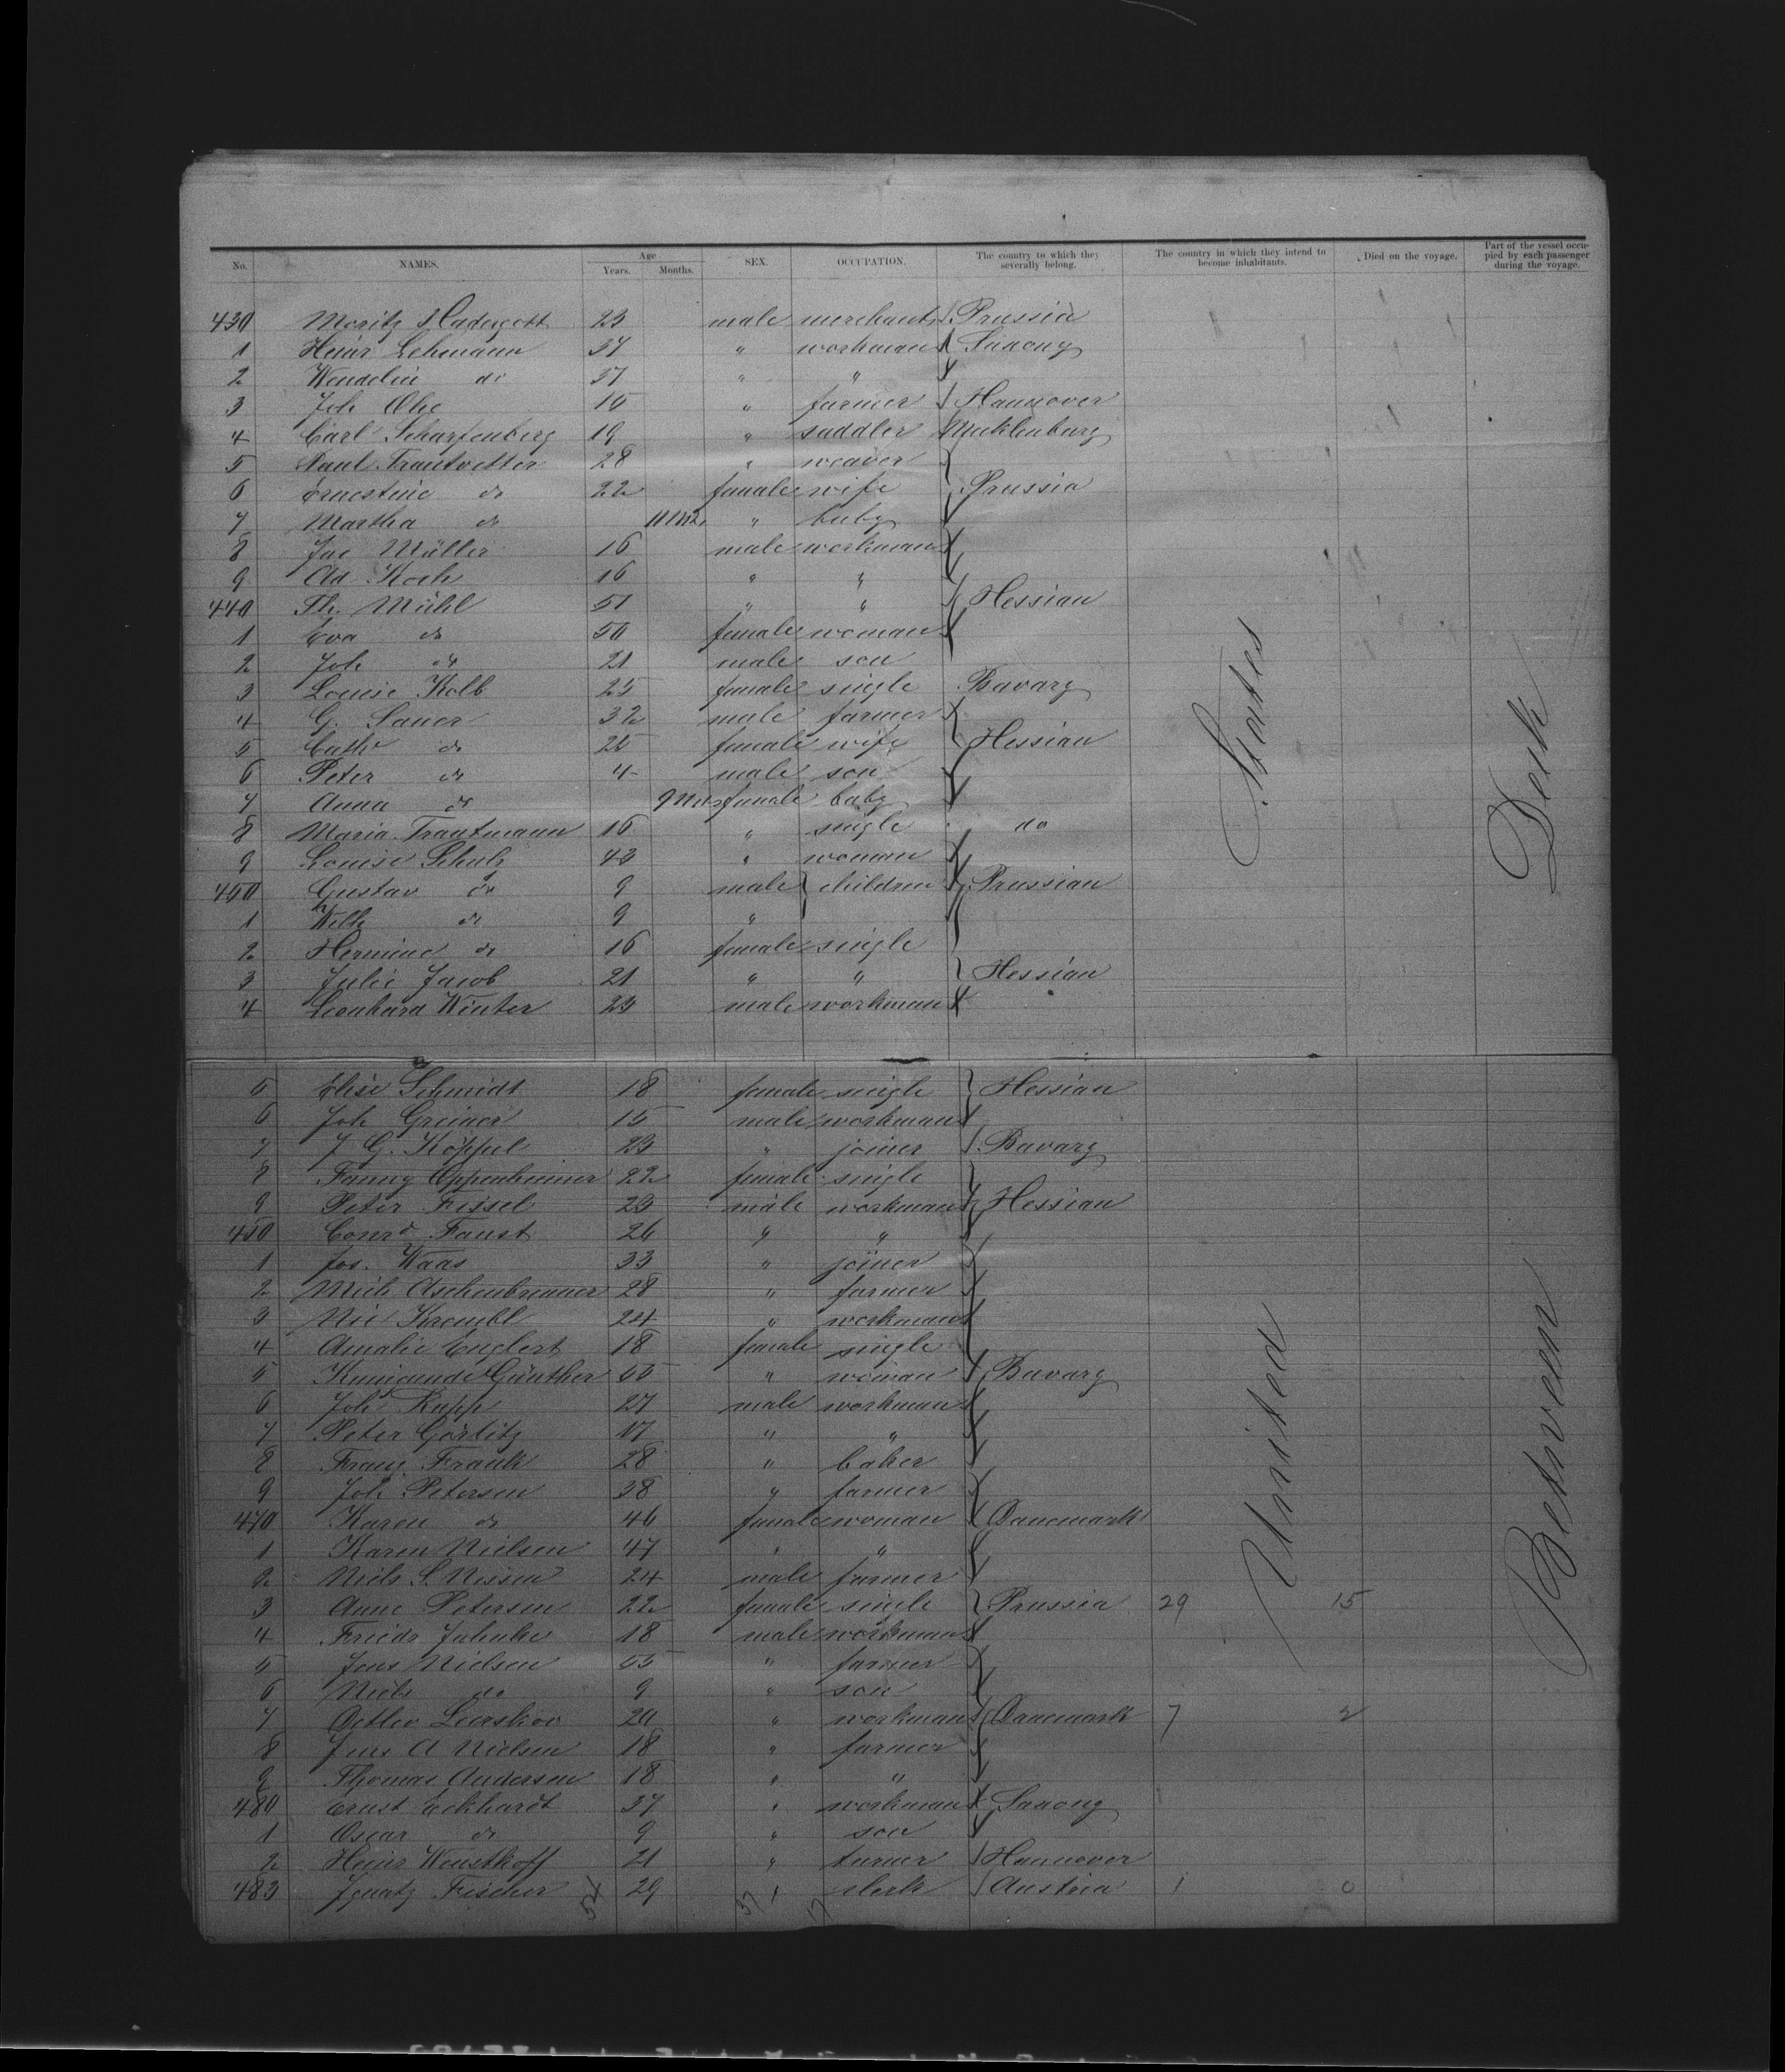 No. NAMES. Age Years. Months. SEX. OCCUPATION. The country to which they severally belong. The country in which they intend to become inhabitants. Died on the voyage. Part of the vessel occupied by each passenger during the voyage.
430 Moritz 23 male merchant Prussia
1 Heinr Lehmann 37 " workman Saxony
2 Wendelin do 37 " "
3 Joh Ohe 15 " farmer Hannover
4 Carl Scharfenberg 19 " saddler Mecklenburg
5 Paul Trautvetter 28 " weaver
6 Ernestine do 22 female wife Prussia
7 Martha do 11 Ms " baby
8 Jac Müller 16 male workman
9 Ad Koch 16 " "
440 Th. Mühl 51 " " Hessian
1 Eva do 50 female woman
2 Joh do 21 male son
3 Louise Kolb 25 female single Bavary
4 G. Sauer 32 male farmer
5 Cath do 25 female wife Hessian
6 Peter do 4 male son
7 Anna do 9 Mos female baby
8 Maria Trautmann 16 " single do
9 Louise Schulz 43 " woman
450 Gustav do 9 male children Prussian
1 Wilh do 9 "
2 Hermine do 16 female single
3 Julie Jacob 21 " " Hessian
4 Leonhard Winter 23 male workman
5 Elise Schmidt 18 female single Hessian
6 Joh Greiner 15 male workman
7 J G. Köppel 23 " joiner Bavary
8 Fanny Oppenheimer 22 female single
9 Peter Fissel 23 male workman Hessian
450 Conrd Faust 26 " "
1 Jos. Waas 33 " joiner
2 Mich Aschenbrenner 28 " farmer
3 Nic 24 " workman
4 Amalie Englert 18 female single
5 Kunigunde Günther 55 " woman Bavary
6 Joh Rupp 27 male workman
7 Peter Görlitz 17 " "
8 Franz Frank 28 " baker
9 Joh Petersen 38 " farmer
470 Karen do 46 female woman Danemark
1 Karen Nielsen 47 " "
2 Niels S. Nissen 24 male farmer
3 Anne Petersen 22 female single Prussia 29 15
4 Friedr Jahnke 18 male workman
5 Jens Nielsen 55 " farmer
6 Niels do 9 " son
7 Detlev Leerskov 20 " workman Danemark 7 2
8 Jens A Nielsen 18 " farmer
9 Thomas Andersen 18 " "
480 Ernst Eckhardt 37 " workman Saxony
1 Oscar do 9 " son
2 Heinr Wensthoff 21 " turner Hannover
483 Ignatz Fischer 29 " clerk Austria 1 0
54 37 17
United States
Between Deck